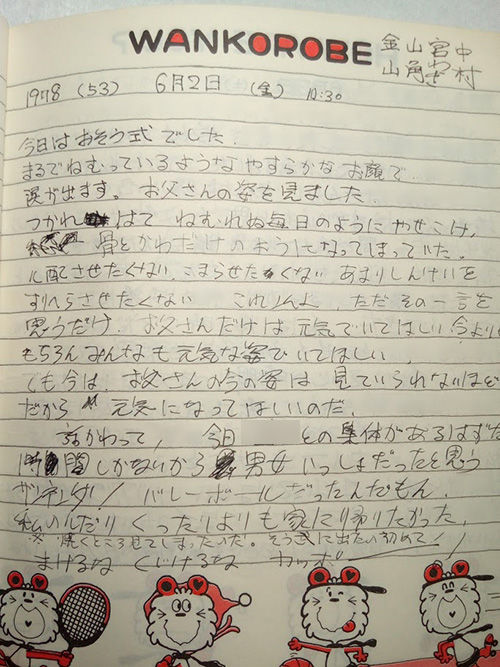 WANKOROBE
金山宮中
山角わき村
1978 (53) 6月2日 (金) 10:30
今日はおそう式でした.
まるでねむっているようなやすらかなお顔で.
涙が出ます。 お父さんの姿を見ました.
つかれはて ねむれぬ毎日のようにやせこけ,
骨とかわだけのようになってしまっていた.
心配させたくない、こまらせたくない あまりしんけいを
すりへらさせたくない これ以上, ただその一言を
思うだけ. お父さんだけは元気でいてほしい 今より.
もちろんみんなも元気な姿でいてほしい,
でも今は、お父さんの今の姿は 見ていられないほど
だから 元気になってほしいのだ.
話かわって, 今日 との集体があるはずた
時間しかないから 男女いっしょだったと思う
ザンネンダ! バレーボールだったんだもん.
家に帰りたかった,
焼くところ見せてしまったのだ。そう式に出たの初めて!
まけるな くじけるな カッポー